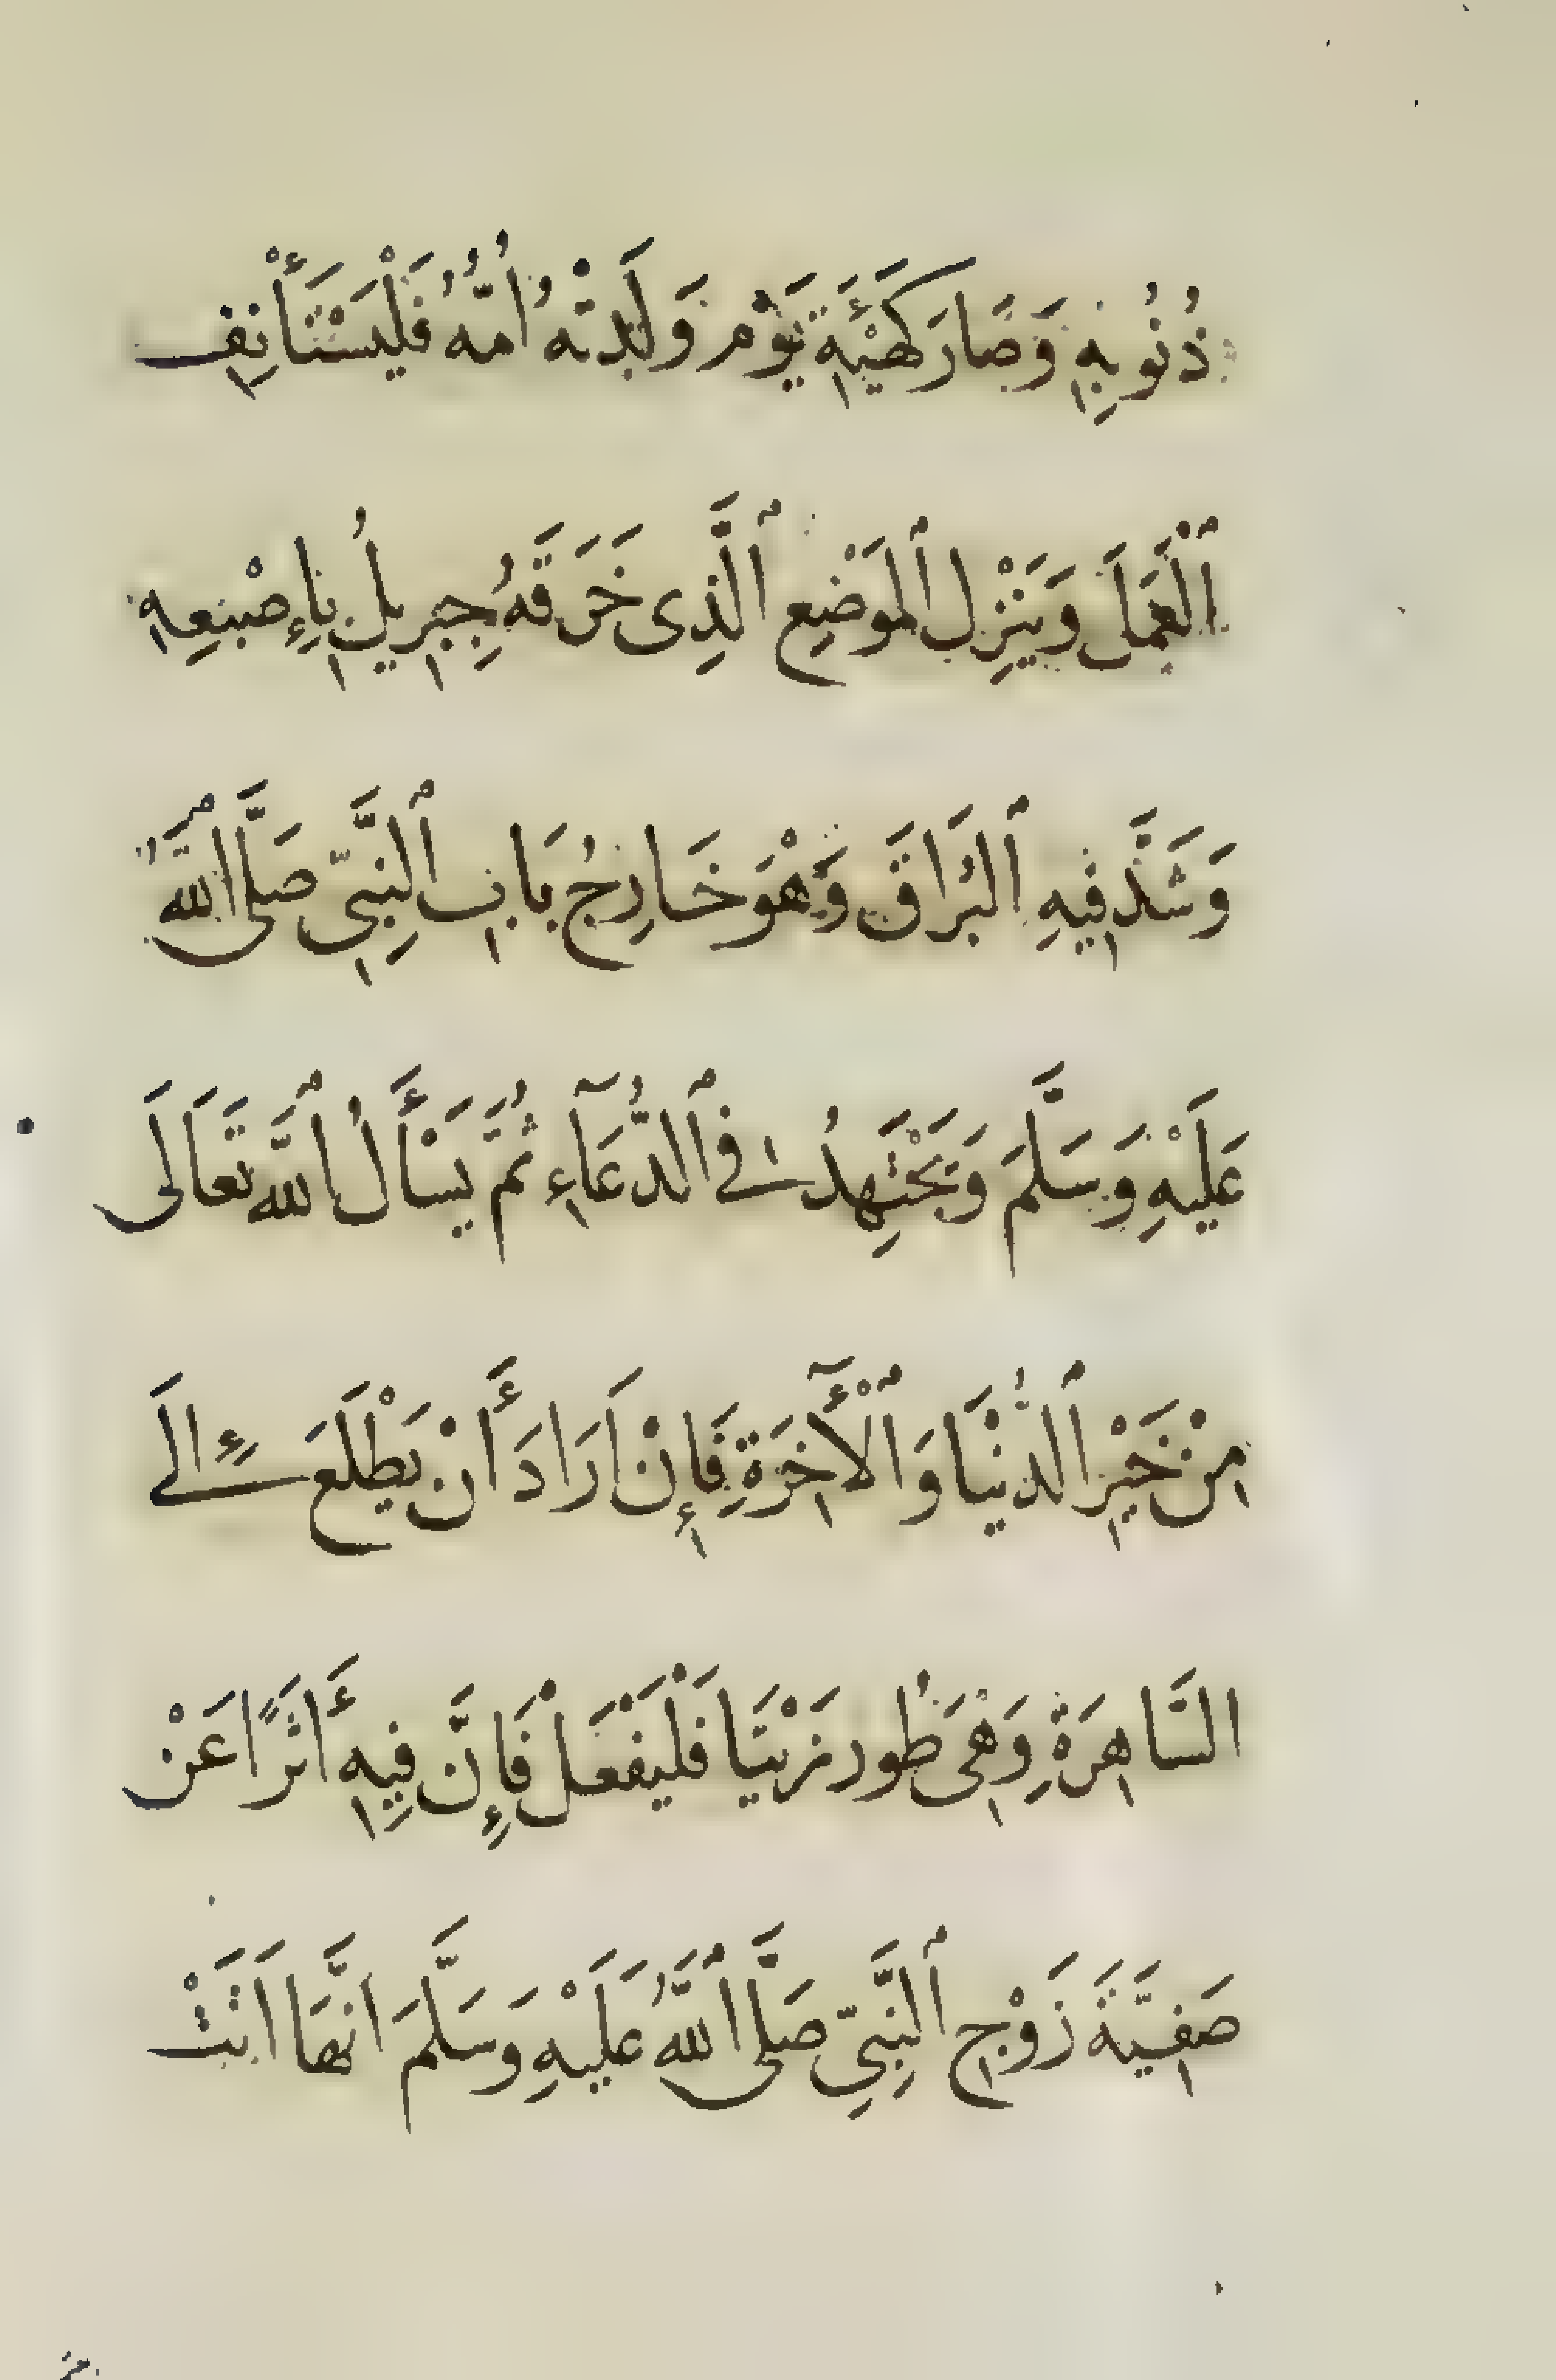 ذُنُوبِهِ وَصَارَ كَهَيْئَةِ يَوْمَ وَلَدَتْهُ أُمُّهُ فَلْيَسْتَأْنِفِ
ٱلْعَمَلَ وَيَنْزِلِ ٱلْمَوْضِعَ ٱلَّذِى خَرَقَهُ جِبْرِيلُ بِإِصْبَعِهِ
وَشَدَّ فِيهِ ٱلْبُرَاقَ وَهْوَ خَارِجُ بَابِ ٱلنَّبِىِّ صَلَّى ٱللَّهُ
عَلَيْهِ وَسَلَّمَ وَيَجْتَهِدُ فِى ٱلدُّعَآءِ ثُمَّ يَسْأَلُ ٱللَّهَ تَعَالَى
مِنْ خَيْرِ ٱلدُّنْيَا وَٱلْأٓخِرَةِ فَإِنْ اَرَادَ أَنْ يَطْلَعَ إِلَى
السَّاهِرَةِ وَهِىَ طُور زَيْتَا فَلْيَفْعَلْ فَإِنَّ فِيهِ أَثَرًا عَنْ
صَفِيَّةَ زَوْجِ ٱلنَّبِىِّ صَلَّى ٱللَّهُ عَلَيْهِ وَسَلَّمَ انَّهَا اَتَتْ